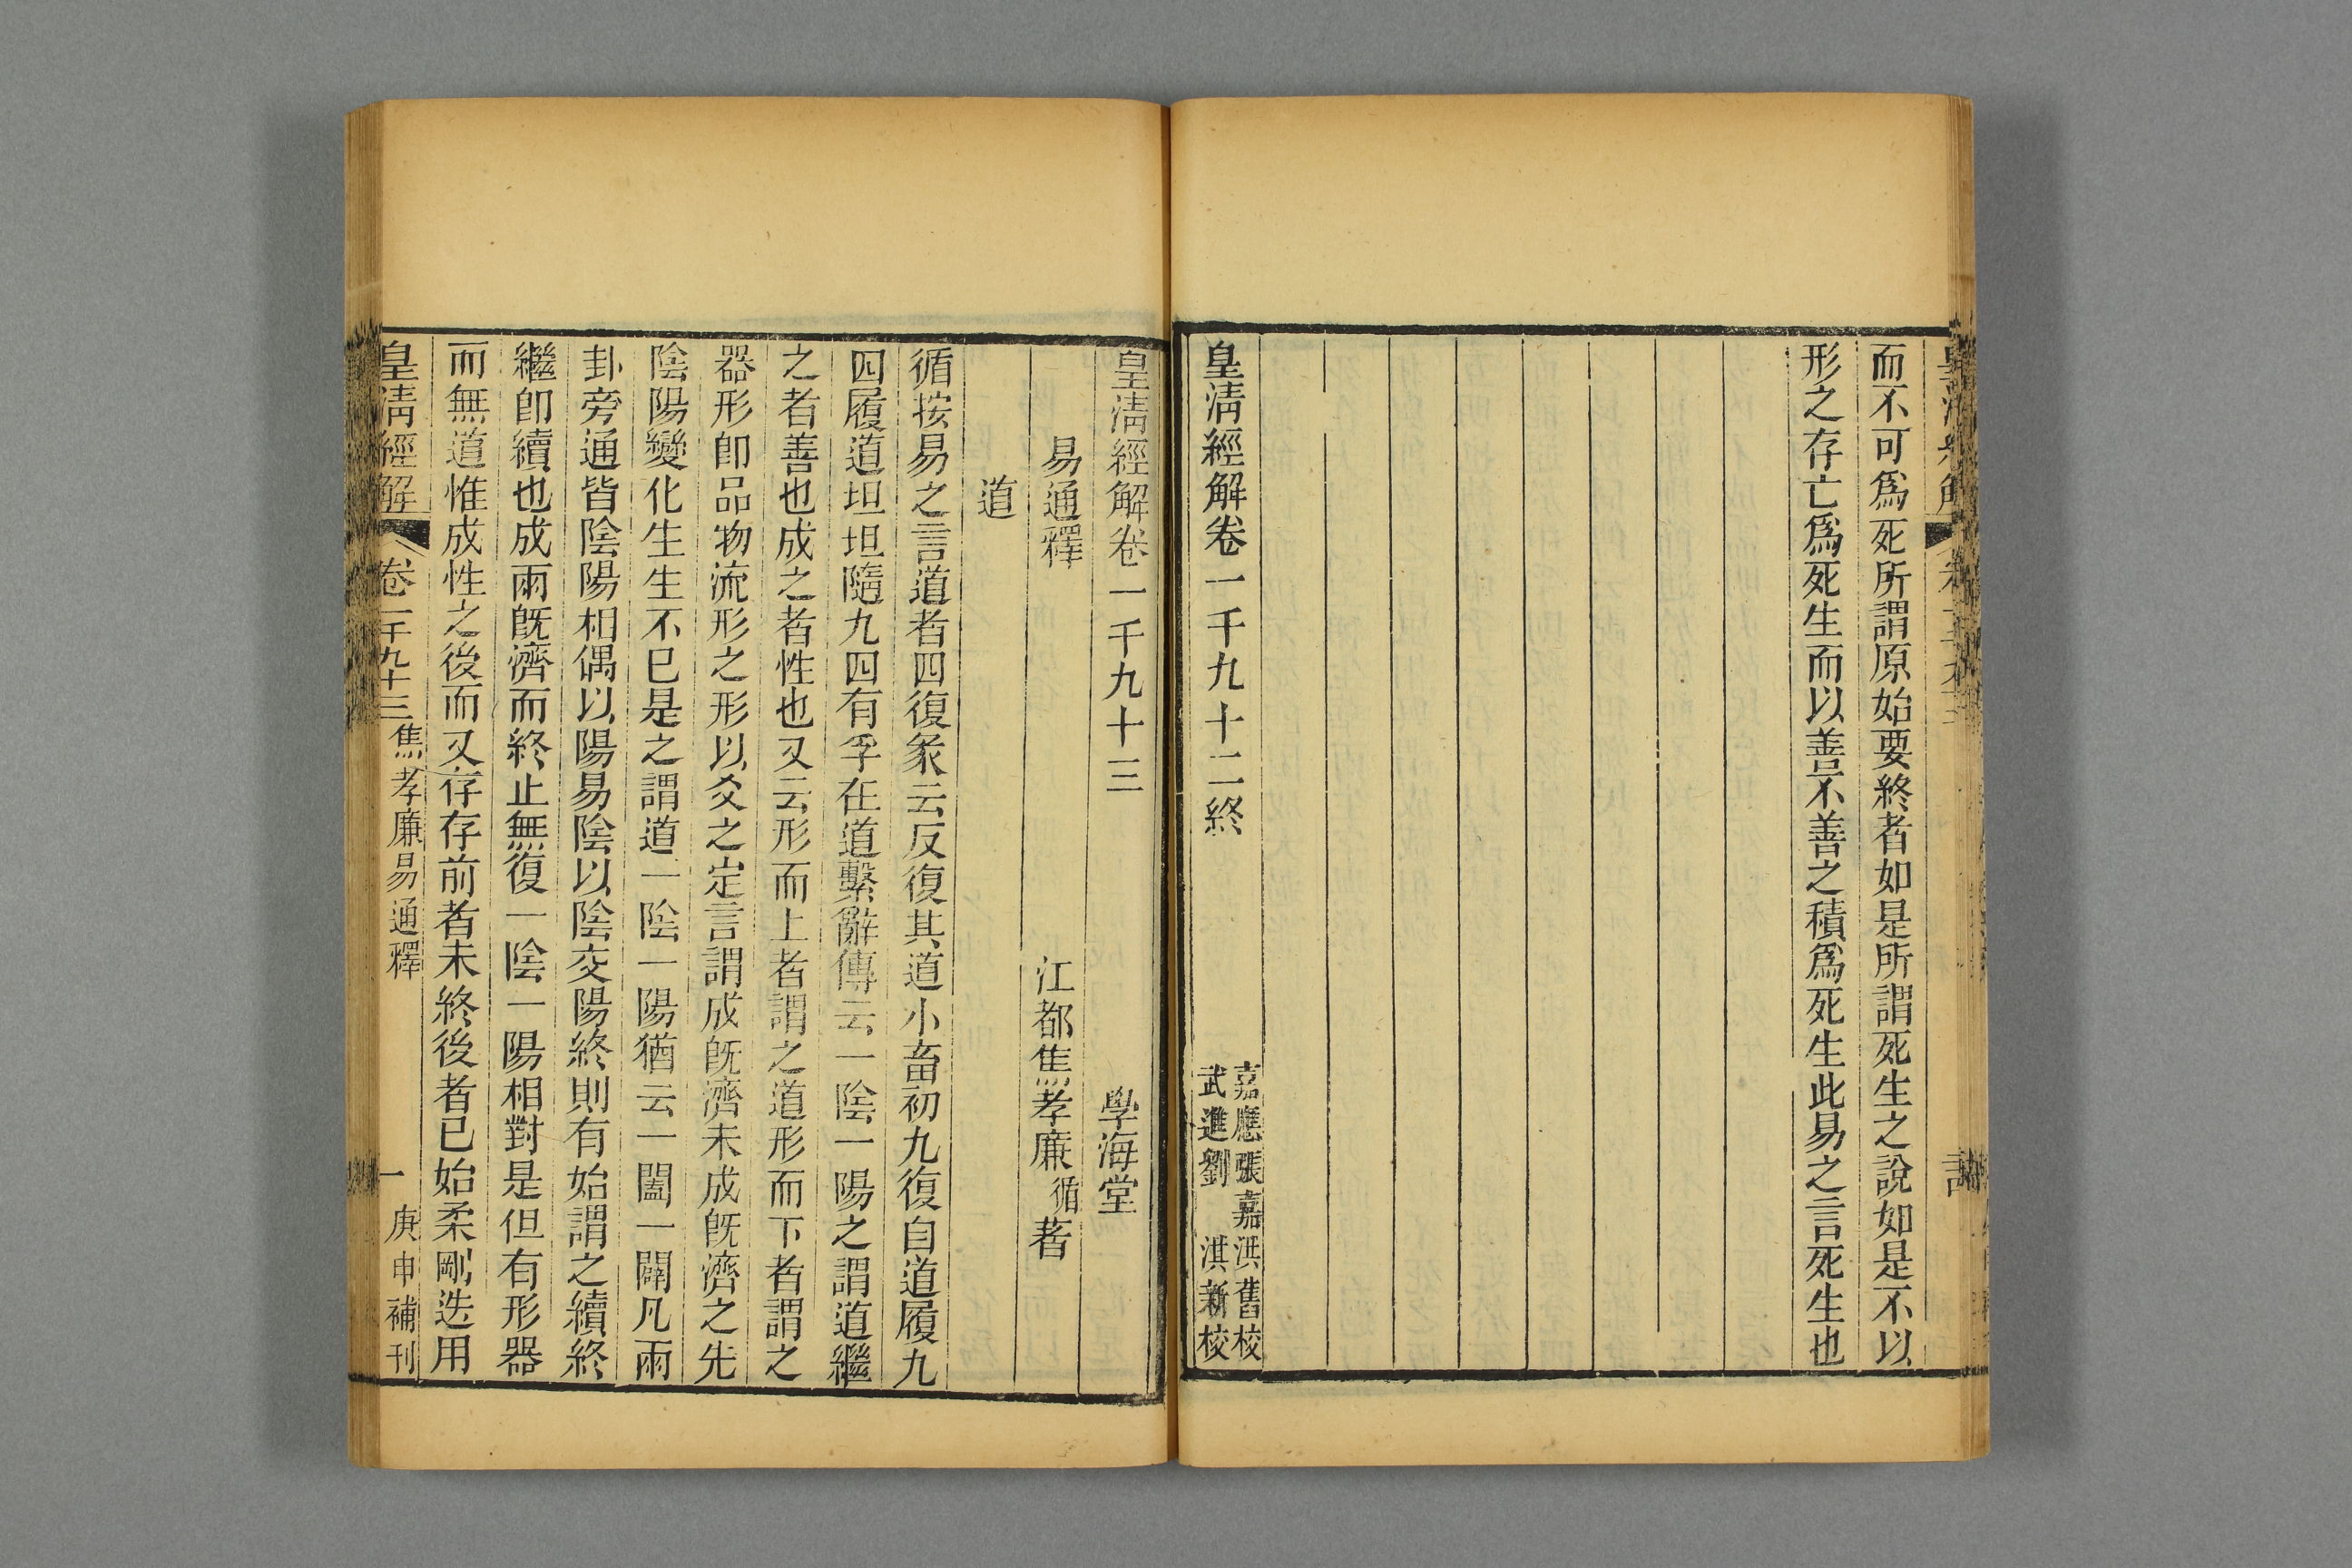 而不可爲死所謂原始要終者如是所謂死生之說如是不以
形之存亡爲死生而以善不善之積爲死生此易之言死生也
皇淸經解卷一千九十二終
嘉應張嘉洪舊校
武進劉淇新校
皇淸經解卷一千九十三
學海堂
易通釋
江都焦孝廉循著
道
循按易之言道者四復彖云反復其道小畜初九復自道履九
四履道坦坦隨九四有孚在道繫辭傳云一陰一陽之謂道繼
之者善也成之者性也又云形而上者謂之道形而下者謂之
器形卽品物流形之形以爻之定言謂成旣濟未成旣濟之先
陰陽變化生生不已是之謂道一陰一陽猶云一闔一闢凡兩
卦旁通皆陰陽相偶以陽易陰以陰交陽終則有始謂之續終
繼卽續也成兩旣濟而終止無復一陰一陽相對是但有形器
而無道惟成性之後而又存存前者未終後者已始柔剛迭用
皇淸經解
卷一千九十三
焦孝廉易通釋
一
庚申補刊